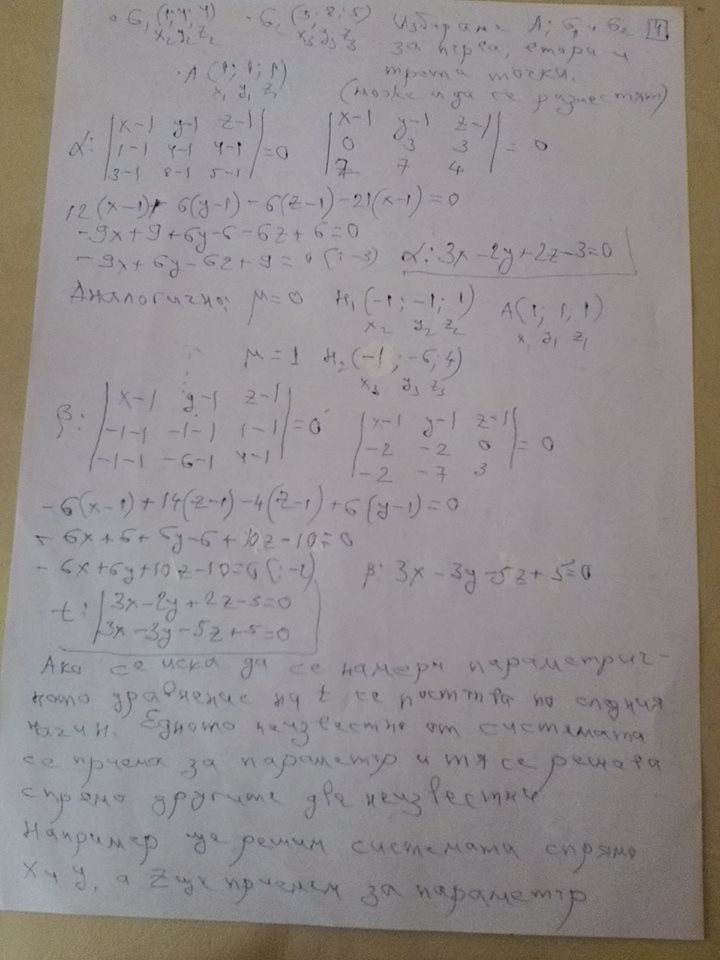 • G₁ (1; 4; 4) • G₂ (3; 8; 5) Избираме A; G₁ и G₂ 4
x₂ y₂ z₂ x₃ y₃ z₃ за първа, втора и
• A (1; 1; 1) трета точки.
x₁ y₁ z₁ (може и да се разместят)
α: |x-1 y-1 z-1| |x-1 y-1 z-1|
|1-1 4-1 4-1| = 0 |0 3 3| = 0
|3-1 8-1 5-1| |7 7 4|
12(x-1)+ 6(y-1) - 6(z-1) - 21(x-1) = 0
-9x + 9 + 6y - 6 - 6z + 6 = 0
-9x + 6y - 6z + 9 = 0 (:-3) α: 3x - 2y + 2z - 3 = 0
Аналогично: μ = 0 H₁ (-1; -1; 1) A (1; 1; 1)
x₂ y₂ z₂ x₁ y₁ z₁
μ = 1 H₂ (-1; -6; 4)
x₃ y₃ z₃
β: |x-1 y-1 z-1| |x-1 y-1 z-1|
|-1-1 -1-1 1-1| = 0 |-2 -2 0| = 0
|-1-1 -6-1 4-1| |-2 -7 3|
-6(x-1) + 14(z-1) - 4(z-1) + 6(y-1) = 0
- 6x + 6 + 6y - 6 + 10z - 10 = 0
- 6x + 6y + 10z - 10 = 0 (:-2) β: 3x - 3y - 5z + 5 = 0
t: |3x - 2y + 2z - 3 = 0
|3x - 3y - 5z + 5 = 0
Ако се иска да се намери параметрич-
ното уравнение на t се постъпва по следния
начин. Едното неизвестно от системата
се приема за параметър и тя се решава
спрямо другите две неизвестни
Например ще решим системата спрямо
x и y, а z ще приемем за параметър